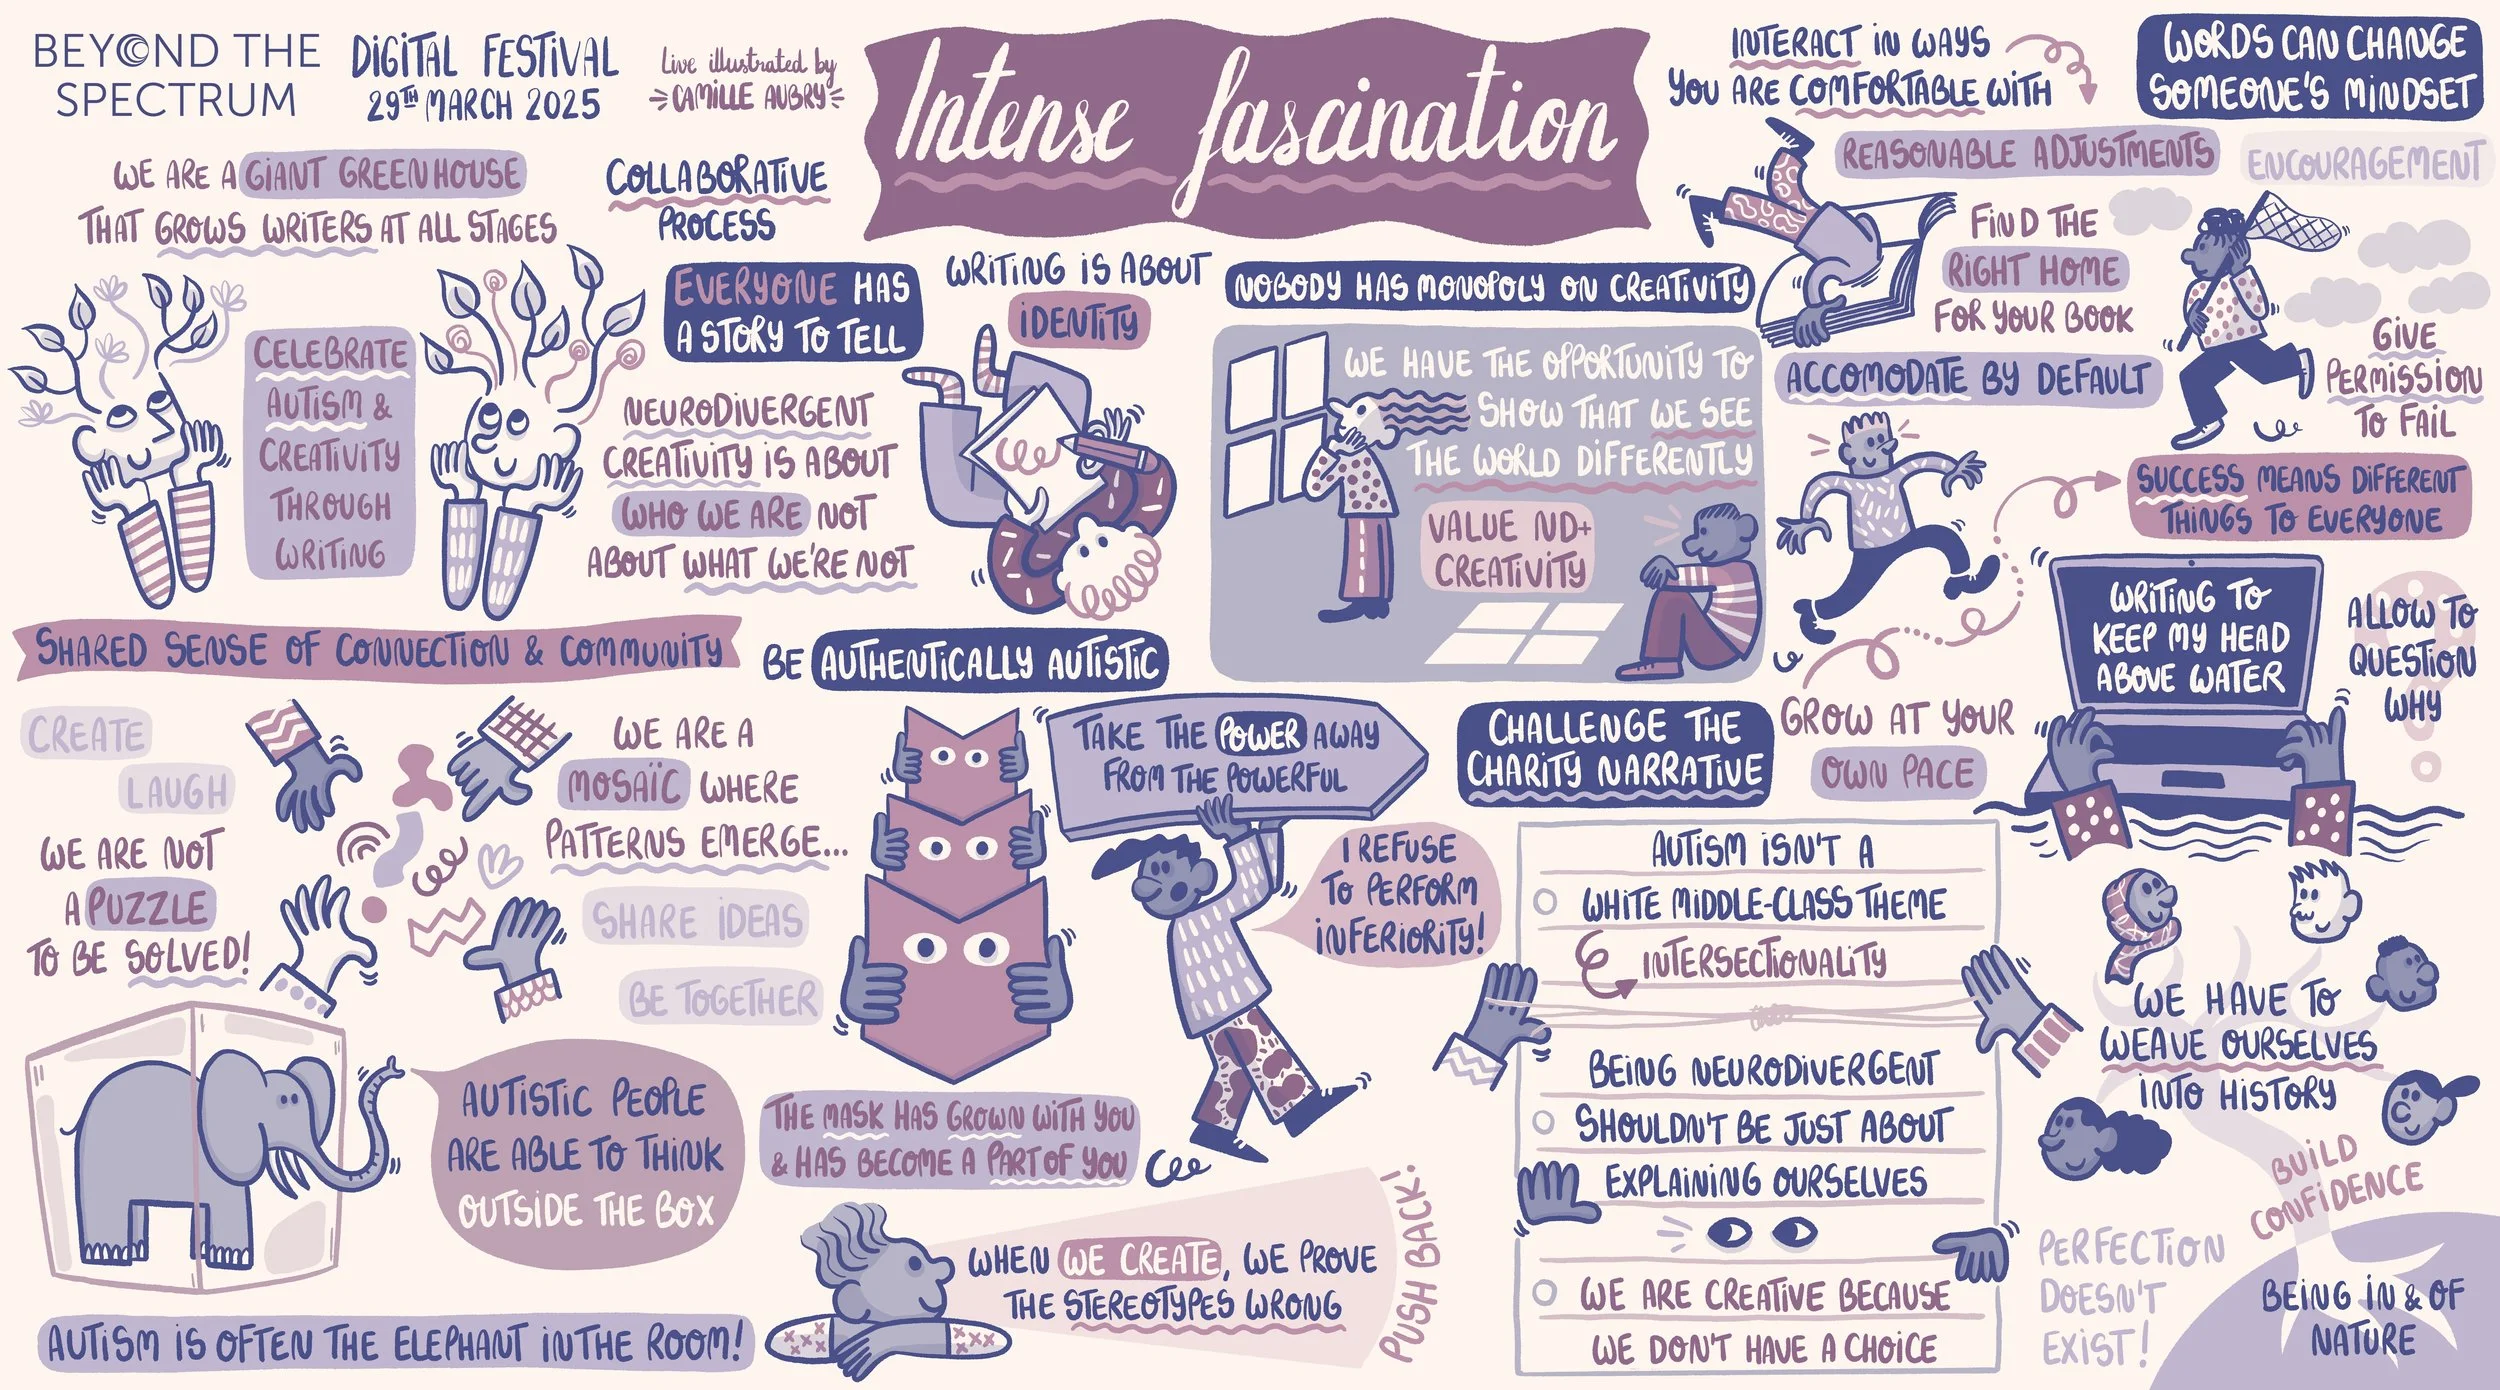 BEYOND THE
SPECTRUM
DIGITAL FESTIVAL
29TH MARCH 2025
Live illustrated by
CAMILLE AUBRY
Intense fascination
INTERACT IN WAYS
YOU ARE COMFORTABLE WITH
WORDS CAN CHANGE
SOMEONE'S MINDSET
WE ARE A GIANT GREENHOUSE
THAT GROWS WRITERS AT ALL STAGES
COLLABORATIVE
PROCESS
REASONABLE ADJUSTMENTS
ENCOURAGEMENT
CELEBRATE
AUTISM &
CREATIVITY
THROUGH
WRITING
EVERYONE HAS
A STORY TO TELL
WRITING IS ABOUT
IDENTITY
NOBODY HAS MONOPOLY ON CREATIVITY
FIND THE
RIGHT HOME
FOR YOUR BOOK
GIVE
PERMISSION
TO FAIL
NEURODIVERGENT
CREATIVITY IS ABOUT
WHO WE ARE NOT
ABOUT WHAT WE'RE NOT
WE HAVE THE OPPORTUNITY TO
SHOW THAT WE SEE
THE WORLD DIFFERENTLY
VALUE ND+
CREATIVITY
ACCOMODATE BY DEFAULT
SUCCESS MEANS DIFFERENT
THINGS TO EVERYONE
SHARED SENSE OF CONNECTION & COMMUNITY
BE AUTHENTICALLY AUTISTIC
WRITING TO
KEEP MY HEAD
ABOVE WATER
ALLOW TO
QUESTION
WHY
CREATE
LAUGH
WE ARE NOT
A PUZZLE
TO BE SOLVED!
WE ARE A
MOSAÏC WHERE
PATTERNS EMERGE...
SHARE IDEAS
BE TOGETHER
TAKE THE POWER AWAY
FROM THE POWERFUL
I REFUSE
TO PERFORM
INFERIORITY!
CHALLENGE THE
CHARITY NARRATIVE
GROW AT YOUR
OWN PACE
AUTISM ISN'T A
WHITE MIDDLE-CLASS THEME
INTERSECTIONALITY
BEING NEURODIVERGENT
SHOULDN'T BE JUST ABOUT
EXPLAINING OURSELVES
WE ARE CREATIVE BECAUSE
WE DON'T HAVE A CHOICE
WE HAVE TO
WEAVE OURSELVES
INTO HISTORY
AUTISTIC PEOPLE
ARE ABLE TO THINK
OUTSIDE THE BOX
THE MASK HAS GROWN WITH YOU
& HAS BECOME A PART OF YOU
AUTISM IS OFTEN THE ELEPHANT IN THE ROOM!
WHEN WE CREATE, WE PROVE
THE STEREOTYPES WRONG
PUSH BACK!
BUILD
CONFIDENCE
PERFECTION
DOESN'T
EXIST!
BEING IN & OF
NATURE